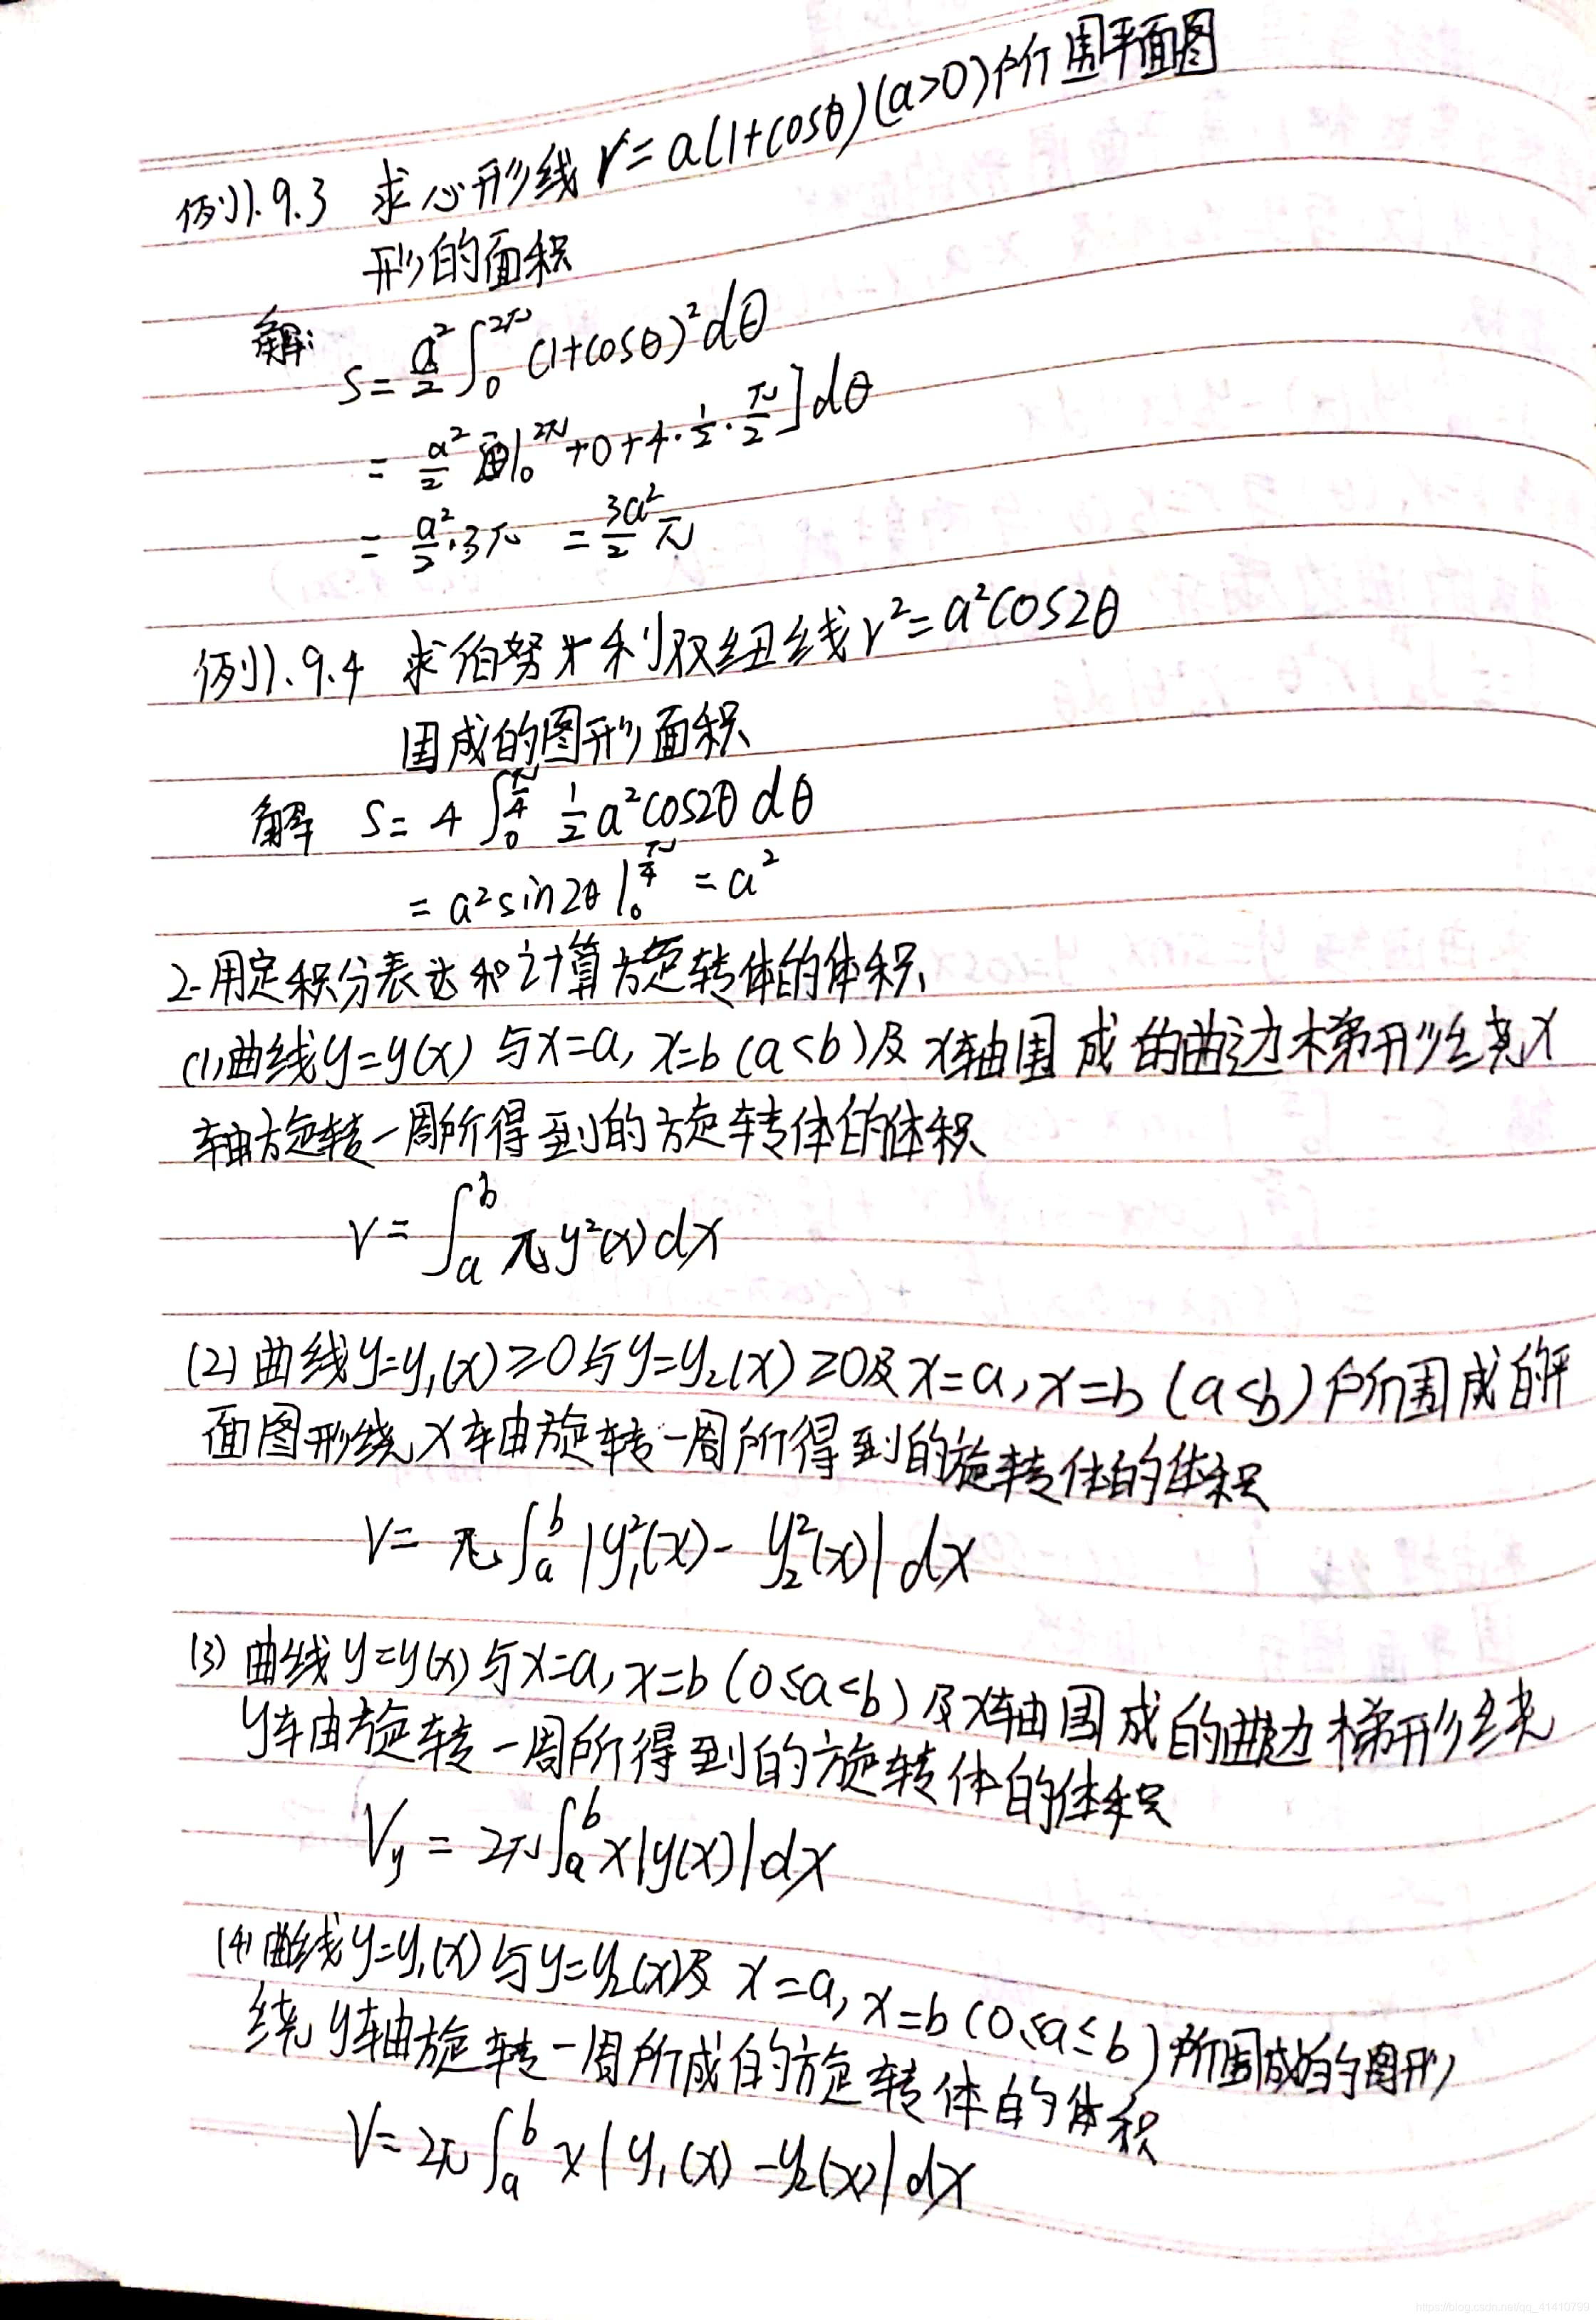 例1.9.3 求心形线 r=a(1+cosθ)(a>0)所围平面图
形的面积
解: S= a²/2 ∫₀^{2π} (1+cosθ)² dθ
= a²/2 |₀^{2π} +0+4·1/2·π/2] dθ
= a²/2·3π = 3a²/2 π
例1.9.4 求伯努利双纽线 r²=a²cos2θ
围成的图形面积
解 S= 4 ∫₀^{π/4} 1/2 a²cos2θ dθ
= a²sin2θ |₀^{π/4} = a²
2.用定积分表达和计算旋转体的体积
(1)曲线y=y(x) 与x=a, x=b (a<b)及 x轴围成的曲边梯形绕x
轴旋转一周所得到的旋转体的体积
V= ∫ₐᵇ π y²(x) dx
(2) 曲线y=y₁(x)≥0与y=y₂(x)≥0及x=a,x=b (a<b)所围成的平
面图形绕x轴旋转一周所得到的旋转体的体积
V= π ∫ₐᵇ |y₁²(x)- y₂²(x)| dx
(3) 曲线y=y(x)与x=a, x=b (0≤a<b)及x轴围成的曲边梯形绕
y轴旋转一周所得到的旋转体的体积
V_y = 2π∫ₐᵇ x|y(x)|dx
(4)曲线y=y₁(x)与y=y₂(x)及 x=a, x=b (0≤a≤b)所围成的图形
绕y轴旋转一周所成的旋转体的体积
V= 2π ∫ₐᵇ x|y₁(x) -y₂(x)|dx
https://blog.csdn.net/qq_41410799